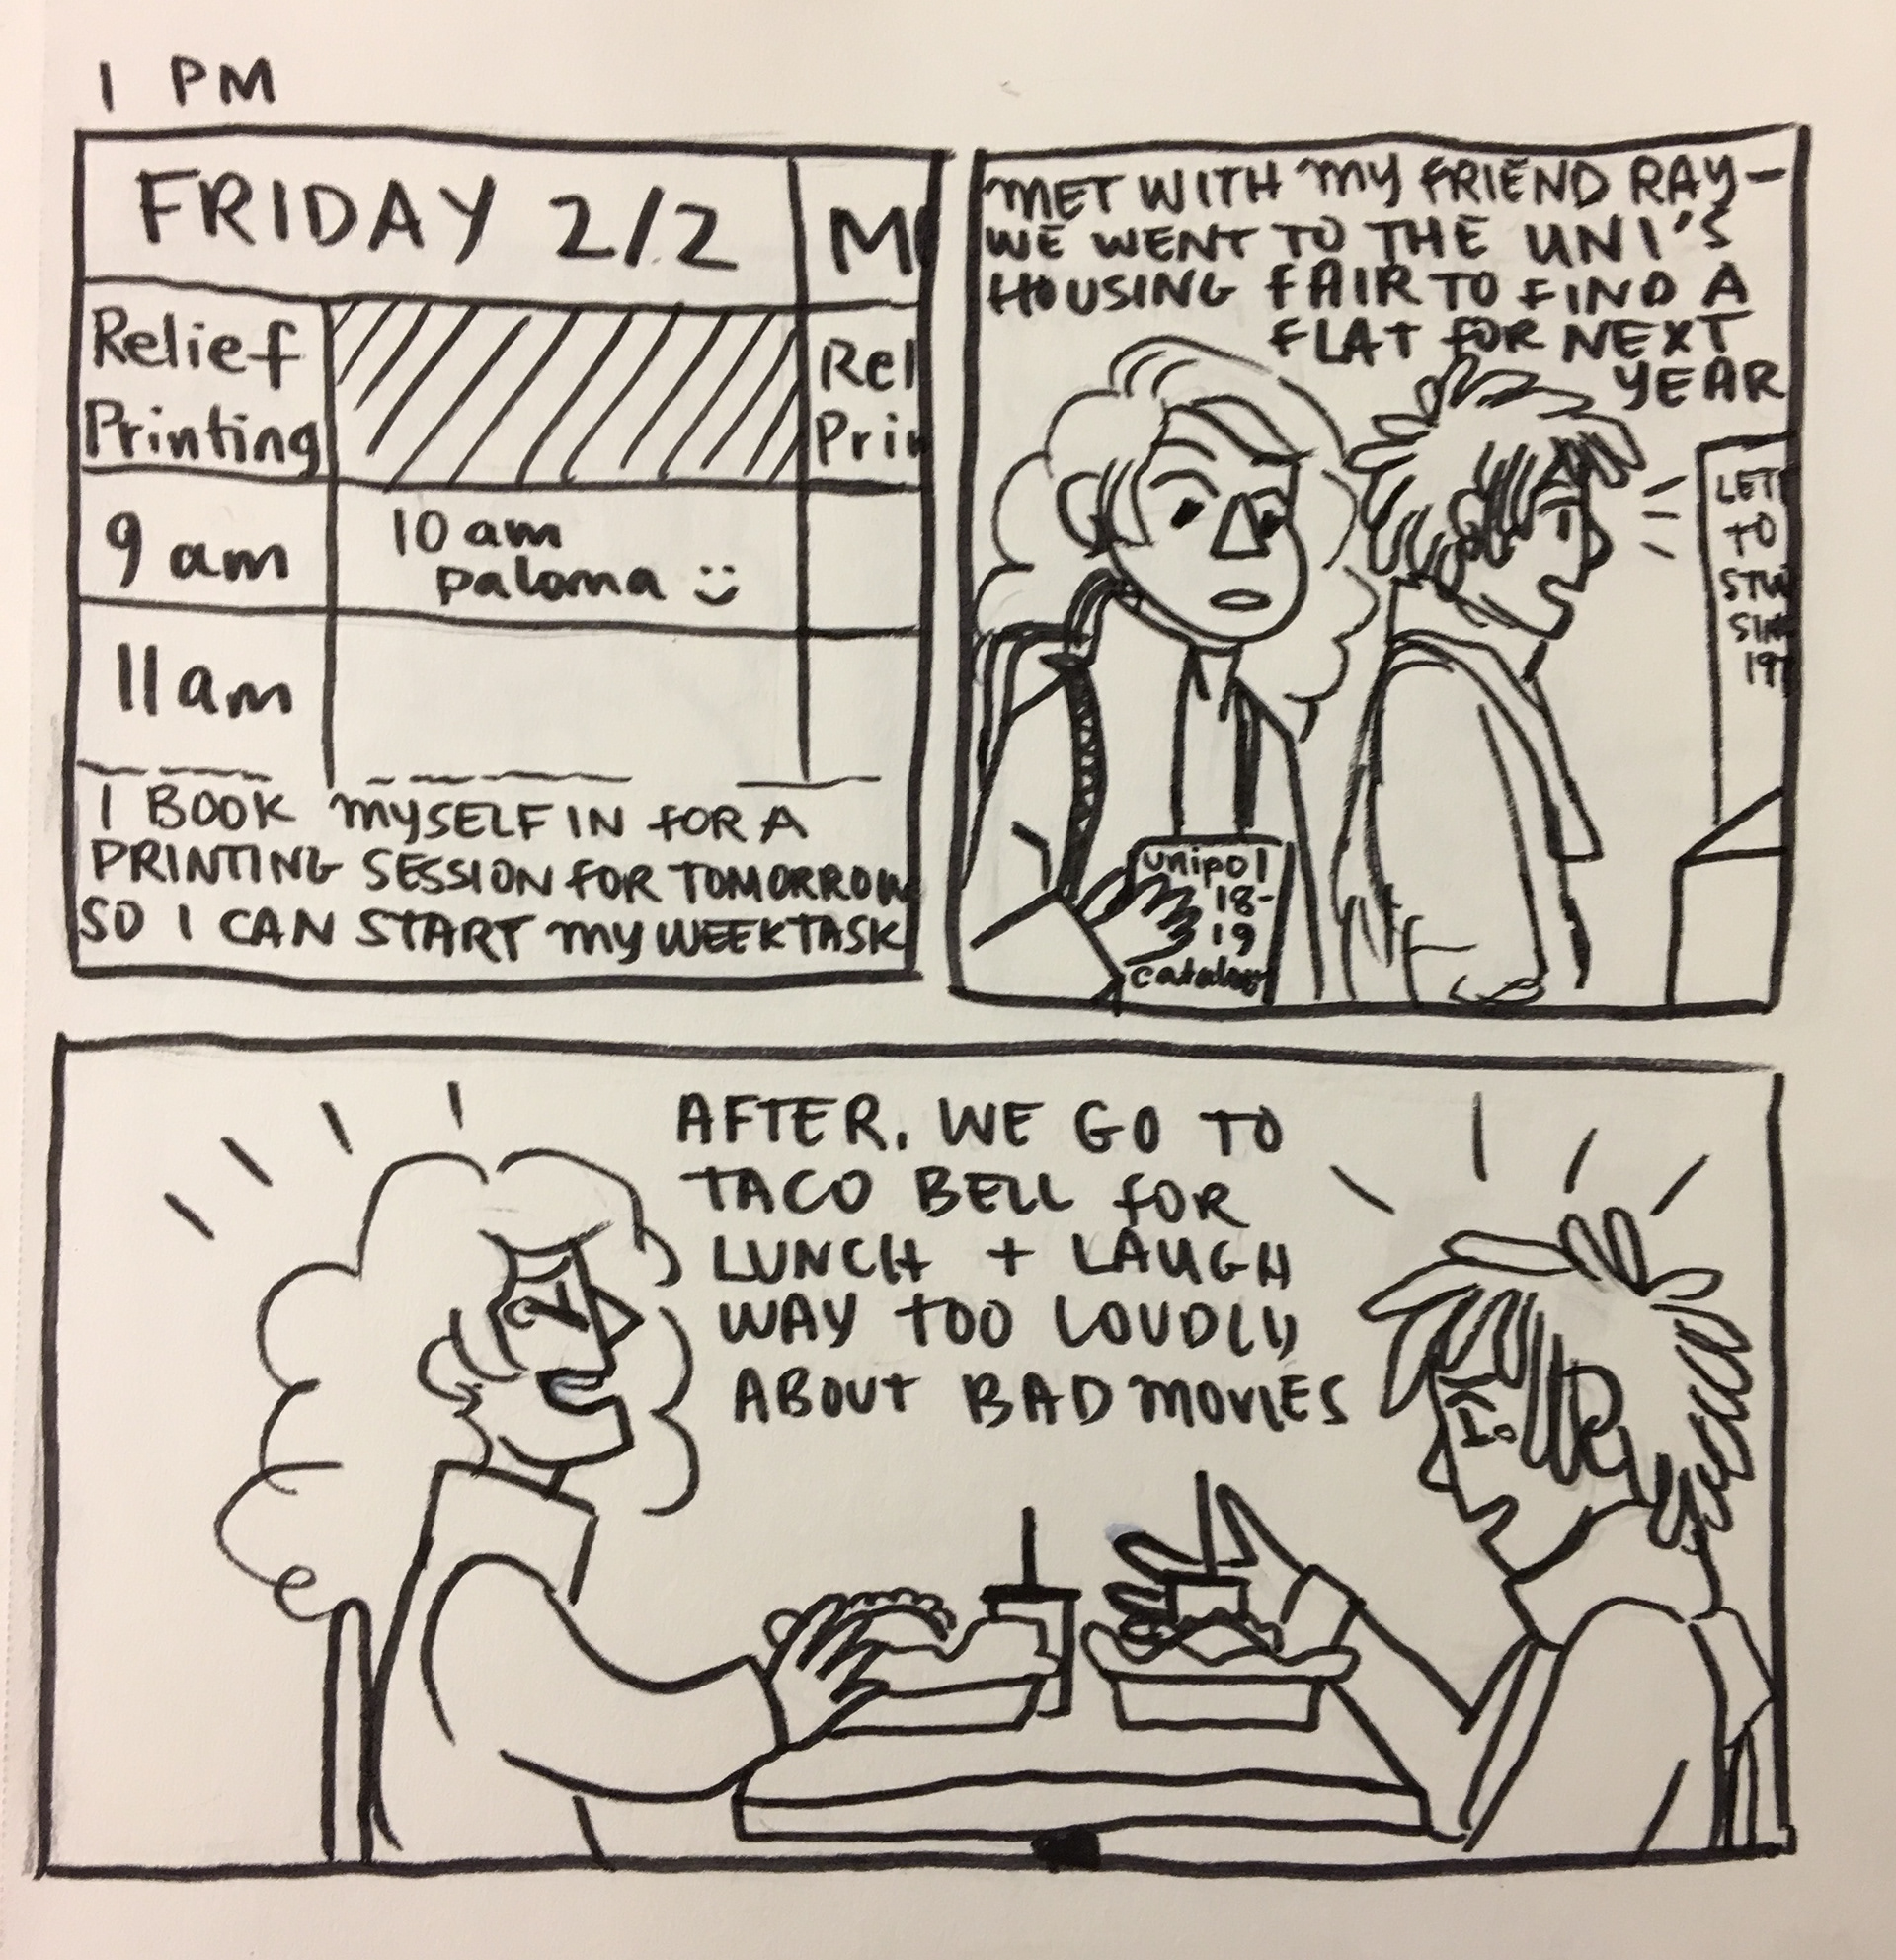 1 PM
FRIDAY 2/2
Relief
Printing
9 am
10 am
paloma :)
11am
I BOOK MYSELF IN FOR A
PRINTING SESSION FOR TOMORROW
SO I CAN START MY WEEKTASK
MET WITH MY FRIEND RAY-
WE WENT TO THE UNI'S
HOUSING FAIR TO FIND A
FLAT FOR NEXT
YEAR
LET
TO
STU
SIN
19
unipol
18-
19
AFTER, WE GO TO
TACO BELL FOR
LUNCH + LAUGH
WAY TOO LOUDLY
ABOUT BAD MOVIES